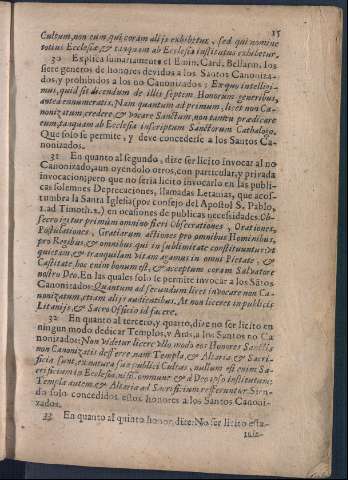 15
Cultum, non cum, qui coram alijs exhibetur, sed qui nomine
totius Ecclesiæ, & tanquam ab Ecclesia institutus exhibetur.
30 Explica sumariamente el Emin. Card. Bellarm. los
siete generos de honores devidos a los Santos Canoniza-
dos, y prohibidos a los no Canonizados: Ex quo intelligi-
mus, quid sit dicendum de illis septem Honorum generibus,
antea enumeratis. Nam quantum ad primum, licet non Ca-
nonizatum credere, & vocare Sanctum, non tantum prædicare
eum, tanquam ab Ecclesia inscriptum Sanctorum Cathalogo.
Que solo se permite, y deve concederse a los Santos Ca-
nonizados.
31 En quanto al segundo, dize ser licito invocar al no
Canonizado, aun oyendolo otros, con particular, y privada
invocacion; pero que no seria licito invocarlo en las publi-
cas solemnes Deprecaciones, llamadas Letanias, que acos-
tumbra la Santa Iglesia (por consejo del Apostol S. Pablo,
1. ad Timoth. 2.) en ocasiones de publicas necessidades. Ob-
secro igitur primum omnino fieri Obsecrationes, Orationes,
Postulationes, Gratiarum actiones pro omnibus Hominibus,
pro Regibus, & omnibus, qui in sublimitate constituuntur: vt
quietam, & tranquilam vitam agamus in omni Pietate, &
Castitate, hoc enim bonum est, & acceptum coram Salvatore
nostro Deo. En las quales solo se permite invocar a los Sãtos
Canonizados: Quantum ad secundum licet invocare non Ca-
nonizatum, etiam alijs audientibus. At non liceret in publicis
Litanijs, & Sacro Officio id facere.
32 En quanto al tercero, y quarto, dize no ser licito en
ningun modo dedicar Templos, y Aras, a los Santos no Ca-
nonizados: Non videtur licere vllo modo eos Honores Sanctis
non Canonizatis deferre, nam Templa, & Altaria, & Sacri-
ficia sunt, ex natura sua publici Cultus, nullum est enim Sa-
crificium in Ecclesia, nisi commune, & à Deo ipso institutum:
Templa autem, & Altaria ad Sacrificium referuntur. Sien-
do solo concedidos estos honores a los Santos Canoni-
zados.
33 En quanto al quinto honor, dize: No ser licito esta-